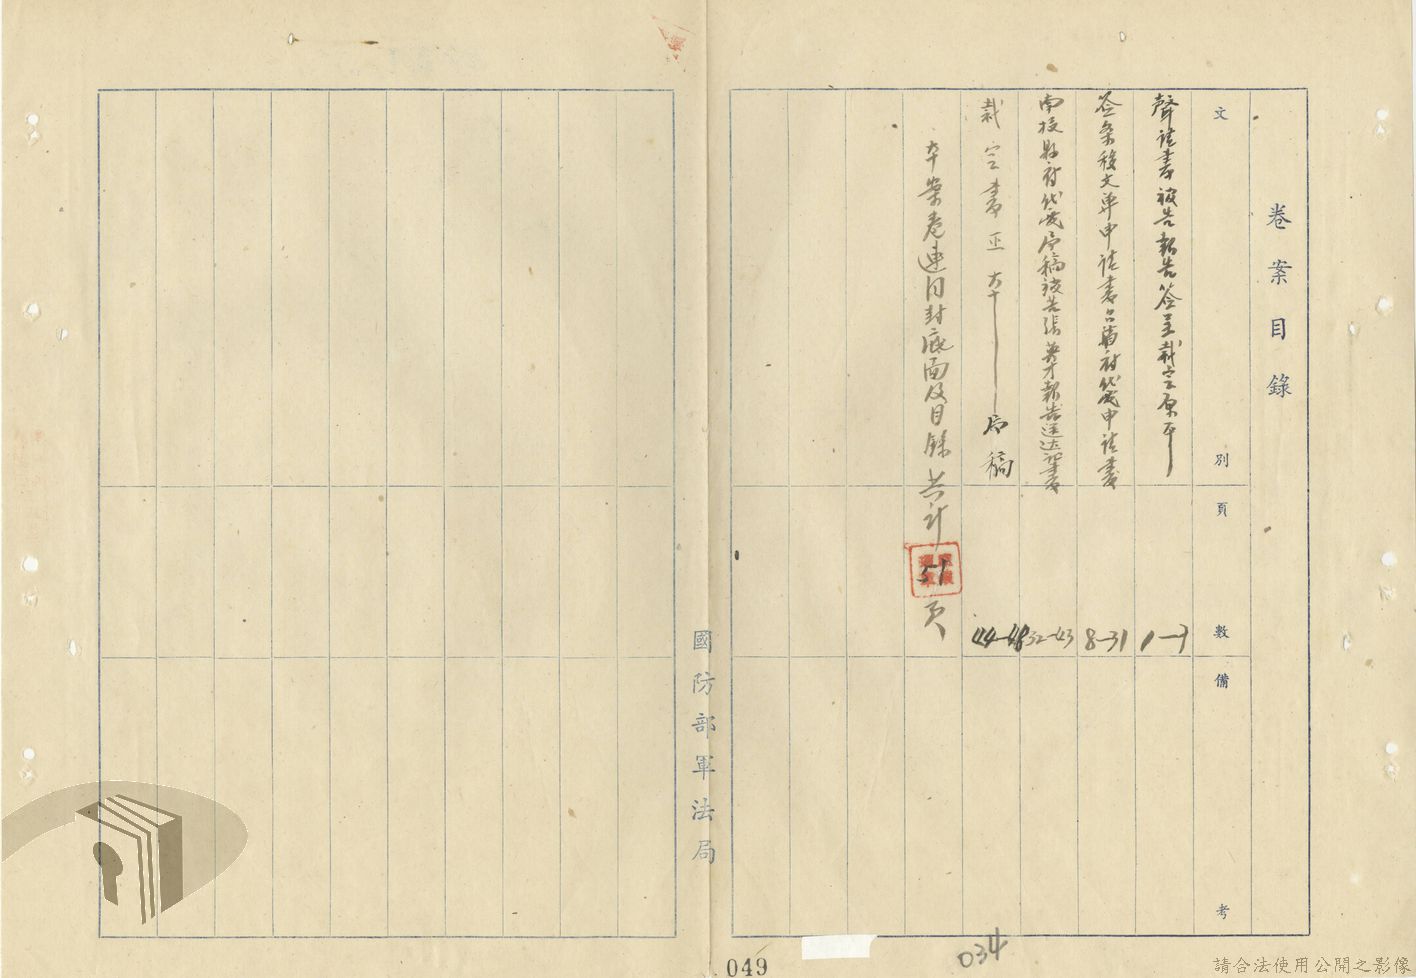 卷案目錄
文別
頁數
備考
聲請書被告報告簽呈裁定原本
1—7
簽條移文單申請書台南府代電申請書
8—31
南投縣府代電原稿被告張英才報告送达証書
32—43
裁定書正本——原稿
44—48
本案卷連同封底面及目錄共計51頁
國防部軍法局
049
034
請合法使用公開之影像